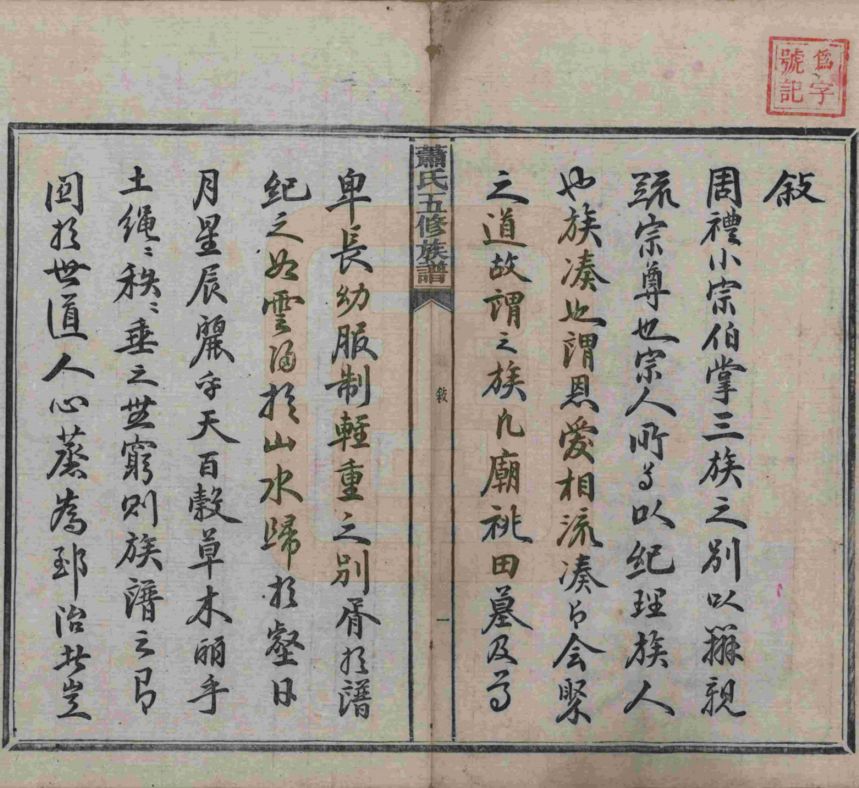 為字號記
敘
周禮小宗伯掌三族之別以辨親
疏宗尊也宗人所尊以紀理族人
也族湊也謂恩愛相流湊以會聚
之道故謂之族凡廟祧田墓及尊
蕭氏五修族譜
敘
一
卑長幼服制輕重之別胥於譜
紀之如雲屬於山水歸於壑日
月星辰麗乎天百穀草木麗乎
土繩繩秩秩垂之無窮則族譜之
關於世道人心蒸為郅治者豈